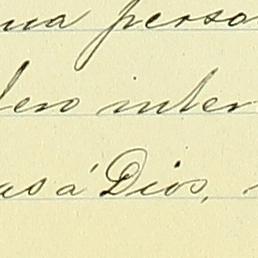 na perso
ero inter
as á Dios,